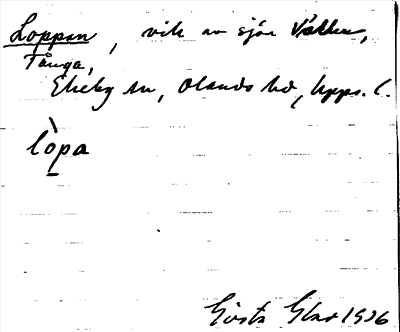 Loppan, vik av sjön Vällen,
Tånga,
Ekeby sn, Olands hd, Upps. l.
lòpa
Gösta 1936